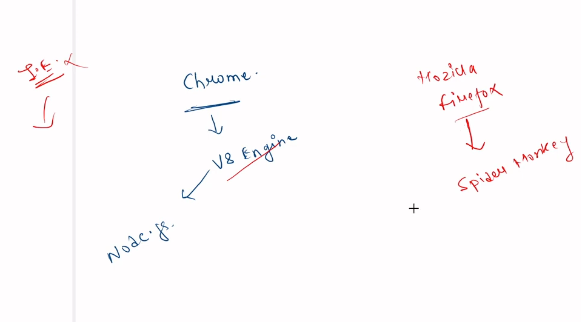 I.E.
Chrome.
V8 Engine
Node.js.
Mozilla
firefox
Spider Monkey